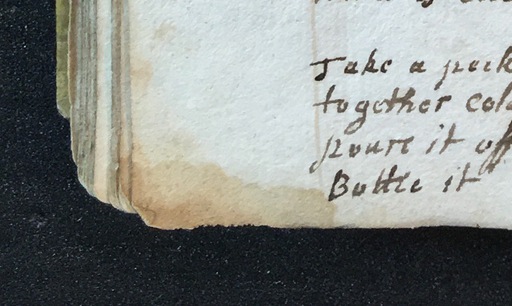 Take a peck
together cold
poure it off
Bottle it